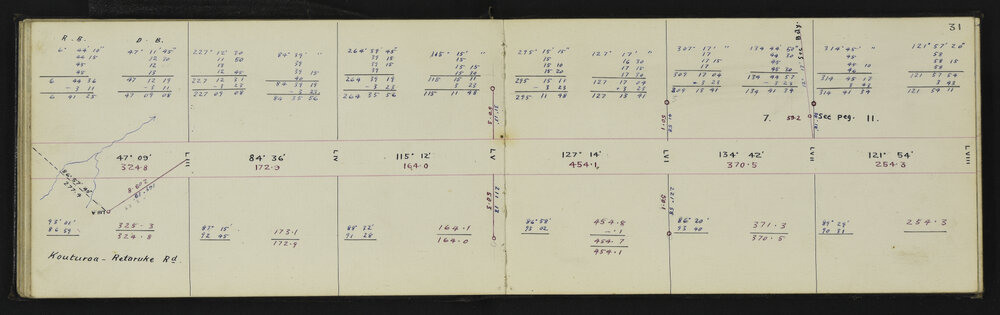 31
R. B. D. B.
6° 44' 10" 47° 11' 45"
44 15 12 30
45' 12
45 13
6 44 36 47 12 19
- 3 11 - 3 11
6 41 25 47 09 08
227° 12' 20 84° 39' "
11 50 39
12 39 15
12 45 40
227 12 31 84 39 19
- 3 23 - 3 23
227 09 08 84 35 56
264° 39' 45" 115° 15' "
39 15 15
39 15 15 15
264 39 19 115 15 11
- 3 23 - 3 23
264 35 56 115 11 48
295° 15' 15" 127° 17' "
15 16 30
15 10 17 15
15 20 17 30
295 15 11 127 17 04
- 3 23 - 3 23
295 11 48 127 13 41
307° 17' " 134° 44' 50"
17 44 30
17 15 45
17 45 30
307 17 04 134 44 57
- 3 23 - 3 23
309 13 41 134 41 34
314° 45' " 121° 57' 20"
45 58
44 10 58 15
46 58
314 45 17 121 57 54
3 43 3 43
314 41 34 121 54 11
7. See peg. 11.
47° 09'
324.8
LII
84° 36'
172.9
115° 12'
164.0
LV
127° 14'
454.1
LVI
134° 42'
370.5
LVII
121° 54'
254.3
LVIII
93° 01'
86 59
325.3
324.8
87° 15'
92 45
173.1
172.9
88° 32'
91 28
164.1
164.0
86° 58'
93 02
454.8
- .1
454.7
454.1
86° 20'
93 40
371.3
370.5
89° 29'
90 31
254.3
Kouturoa - Retaruke Rd.